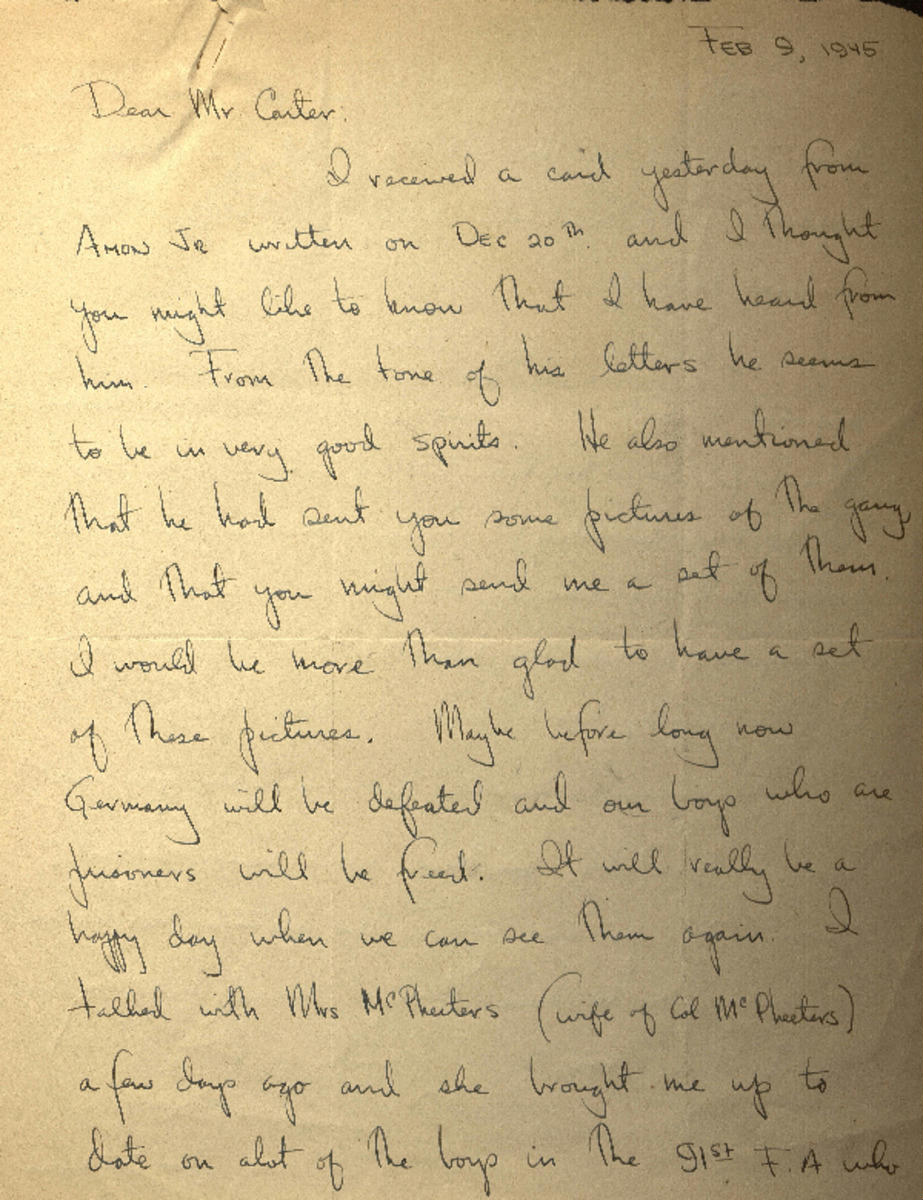 FEB 9, 1945
Dear Mr Carter:
I received a card yesterday from
AMON JR written on DEC 20th. and I thought
you might like to know that I have heard from
him. From the tone of his letters he seems
to be in very good spirits. He also mentioned
that he had sent you some pictures of the gang,
and that you might send me a set of them.
I would be more than glad to have a set
of these pictures. Maybe before long now
Germany will be defeated and our boys who are
prisoners will be freed. It will really be a
happy day when we can see them again. I
talked with Mrs McPheeters (wife of Col McPheeters)
a few days ago and she brought me up to
date on alot of the boys in the 91st F.A who